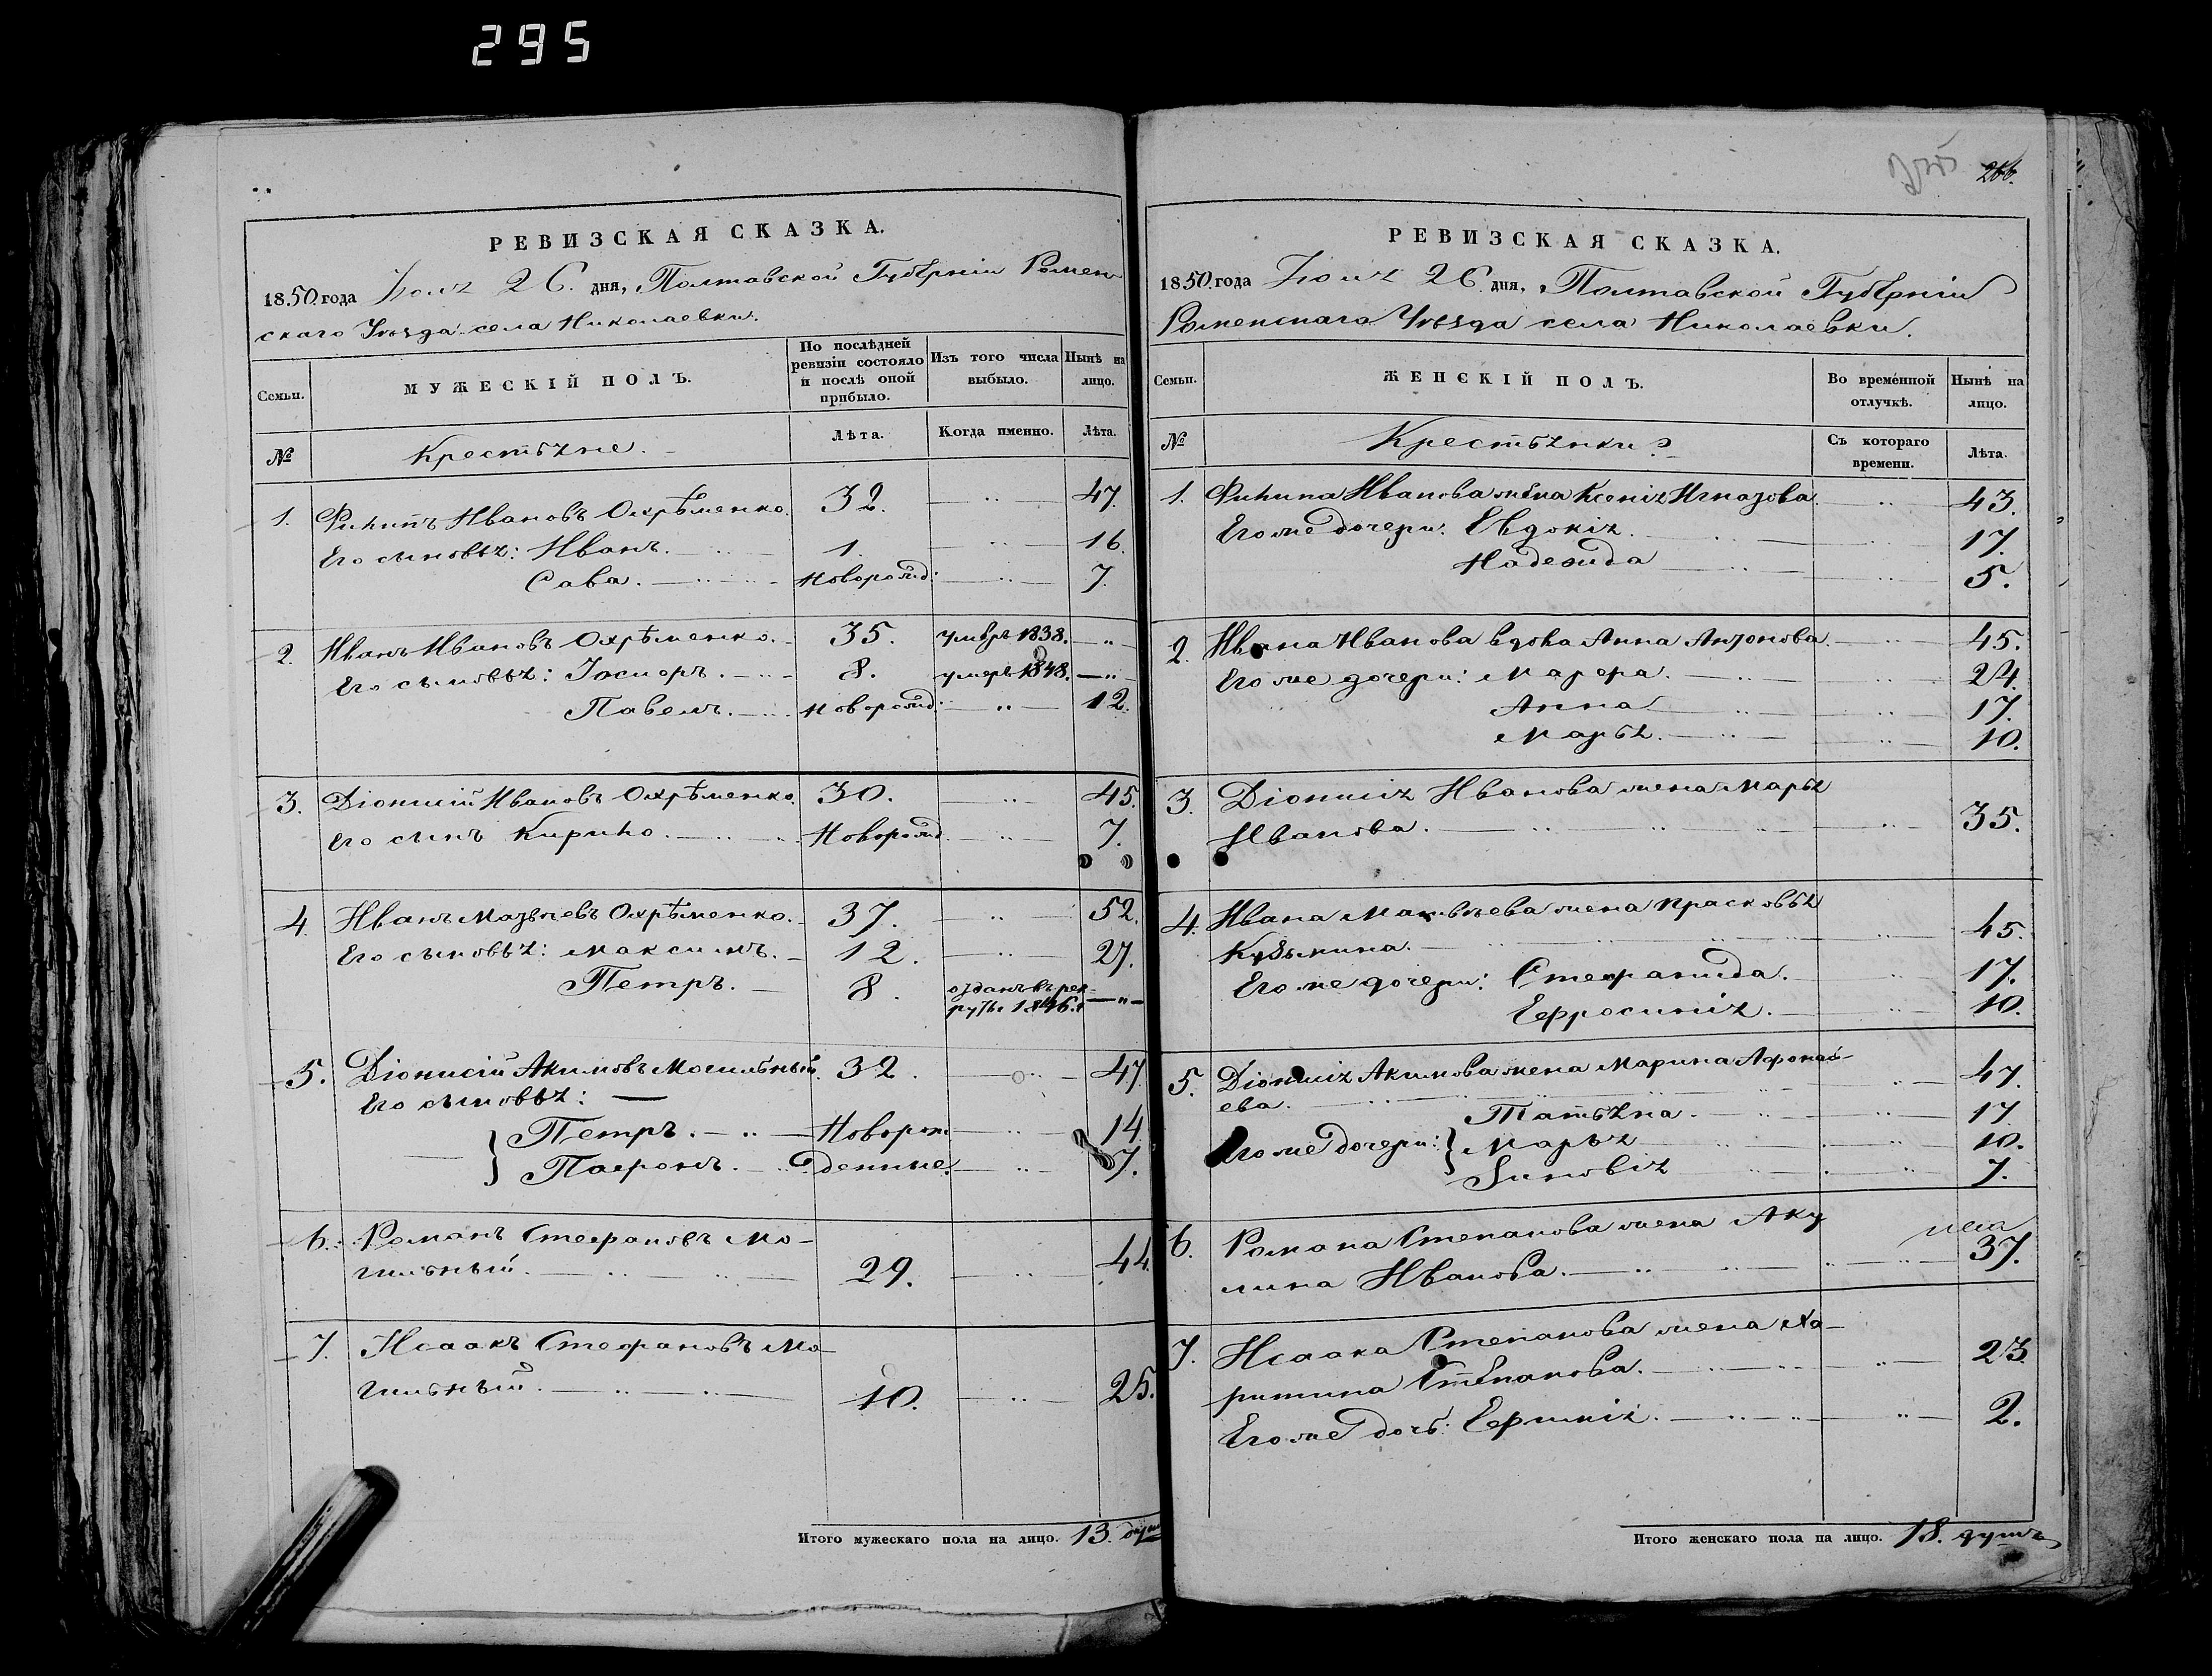 295
266.
РЕВИЗСКАЯ СКАЗКА.
1850 года Іюля 26. дня, Полтавской Губерніи Ромен
скаго Уѣзда села Николаевки.
Семьи.
МУЖЕСКІЙ ПОЛЪ.
По послѣдней ревизіи состояло и послѣ оной прибыло.
Изъ того числа выбыло.
Нынѣ на лицо.
№
Крестьяне.
Лѣта.
Когда именно.
Лѣта.
1. Филипъ Ивановъ Охрѣменко. 32. 47.
Его сыновья: Иванъ. 1. 16.
Сава. Новорожд: 7.
2. Иванъ Ивановъ Охрѣменко. 35. умеръ 1838.
Его сыновья: 8. умеръ 1848.
Павелъ. Новорожд: 12.
3. Діонисій Ивановъ Охрѣменко. 30. 45.
Его сынъ Кирило. Новорожд. 7.
4. Иванъ Матвѣевъ Охрѣменко. 37. 52.
Его сыновья: Максимъ. 12. 27.
Петръ. 8. отданъ въ рек-
руты 1846.
5. Діонисій Акимовъ Могильный. 32. 47.
Его сыновья:
Петръ. Новорож 14
Пафронъ. денные. 7.
6. Романъ Стефановъ Мо-
гильный. 29. 44.
7. Исаакъ Стефановъ Мо-
гильный. 10. 25.
Итого мужескаго пола на лицо. 13. душъ
РЕВИЗСКАЯ СКАЗКА.
1850 года Іюля 26 дня, Полтавской Губерніи
Роменскаго Уѣзда села Николаевки.
Семьи.
ЖЕНСКІЙ ПОЛЪ.
Во временной отлучкѣ.
Нынѣ на лицо.
№
Крестьянки
Съ котораго времени.
Лѣта.
1. Филипа Иванова жена Ксенія Игнатова 43.
Его же дочери: Евдокія. 17.
Надежда 5.
2. Ивана Иванова вдова Анна Антонова. 45.
Его же дочери: Марфа. 24.
Анна 17.
Марья. 10.
3. Діонисія Иванова жена Марья
Иванова. 35.
4. Ивана Матвѣева жена Прасковья
Кузьмина. 45.
Его же дочери: Стефанида. 17.
Ефросинія. 10.
5. Діонисія Акимова жена Марина Афонась-
ева. 47.
Татьяна. 17
Его же дочери: Марья 10.
Зиновія 7.
6. Романа Степанова жена Аку
лина Иванова. 37.
7. Исаака Степанова жена Ха-
ритина Степанова. 23
Его же дочь: Ефимія. 2.
Итого женскаго пола на лицо. 18. душъ